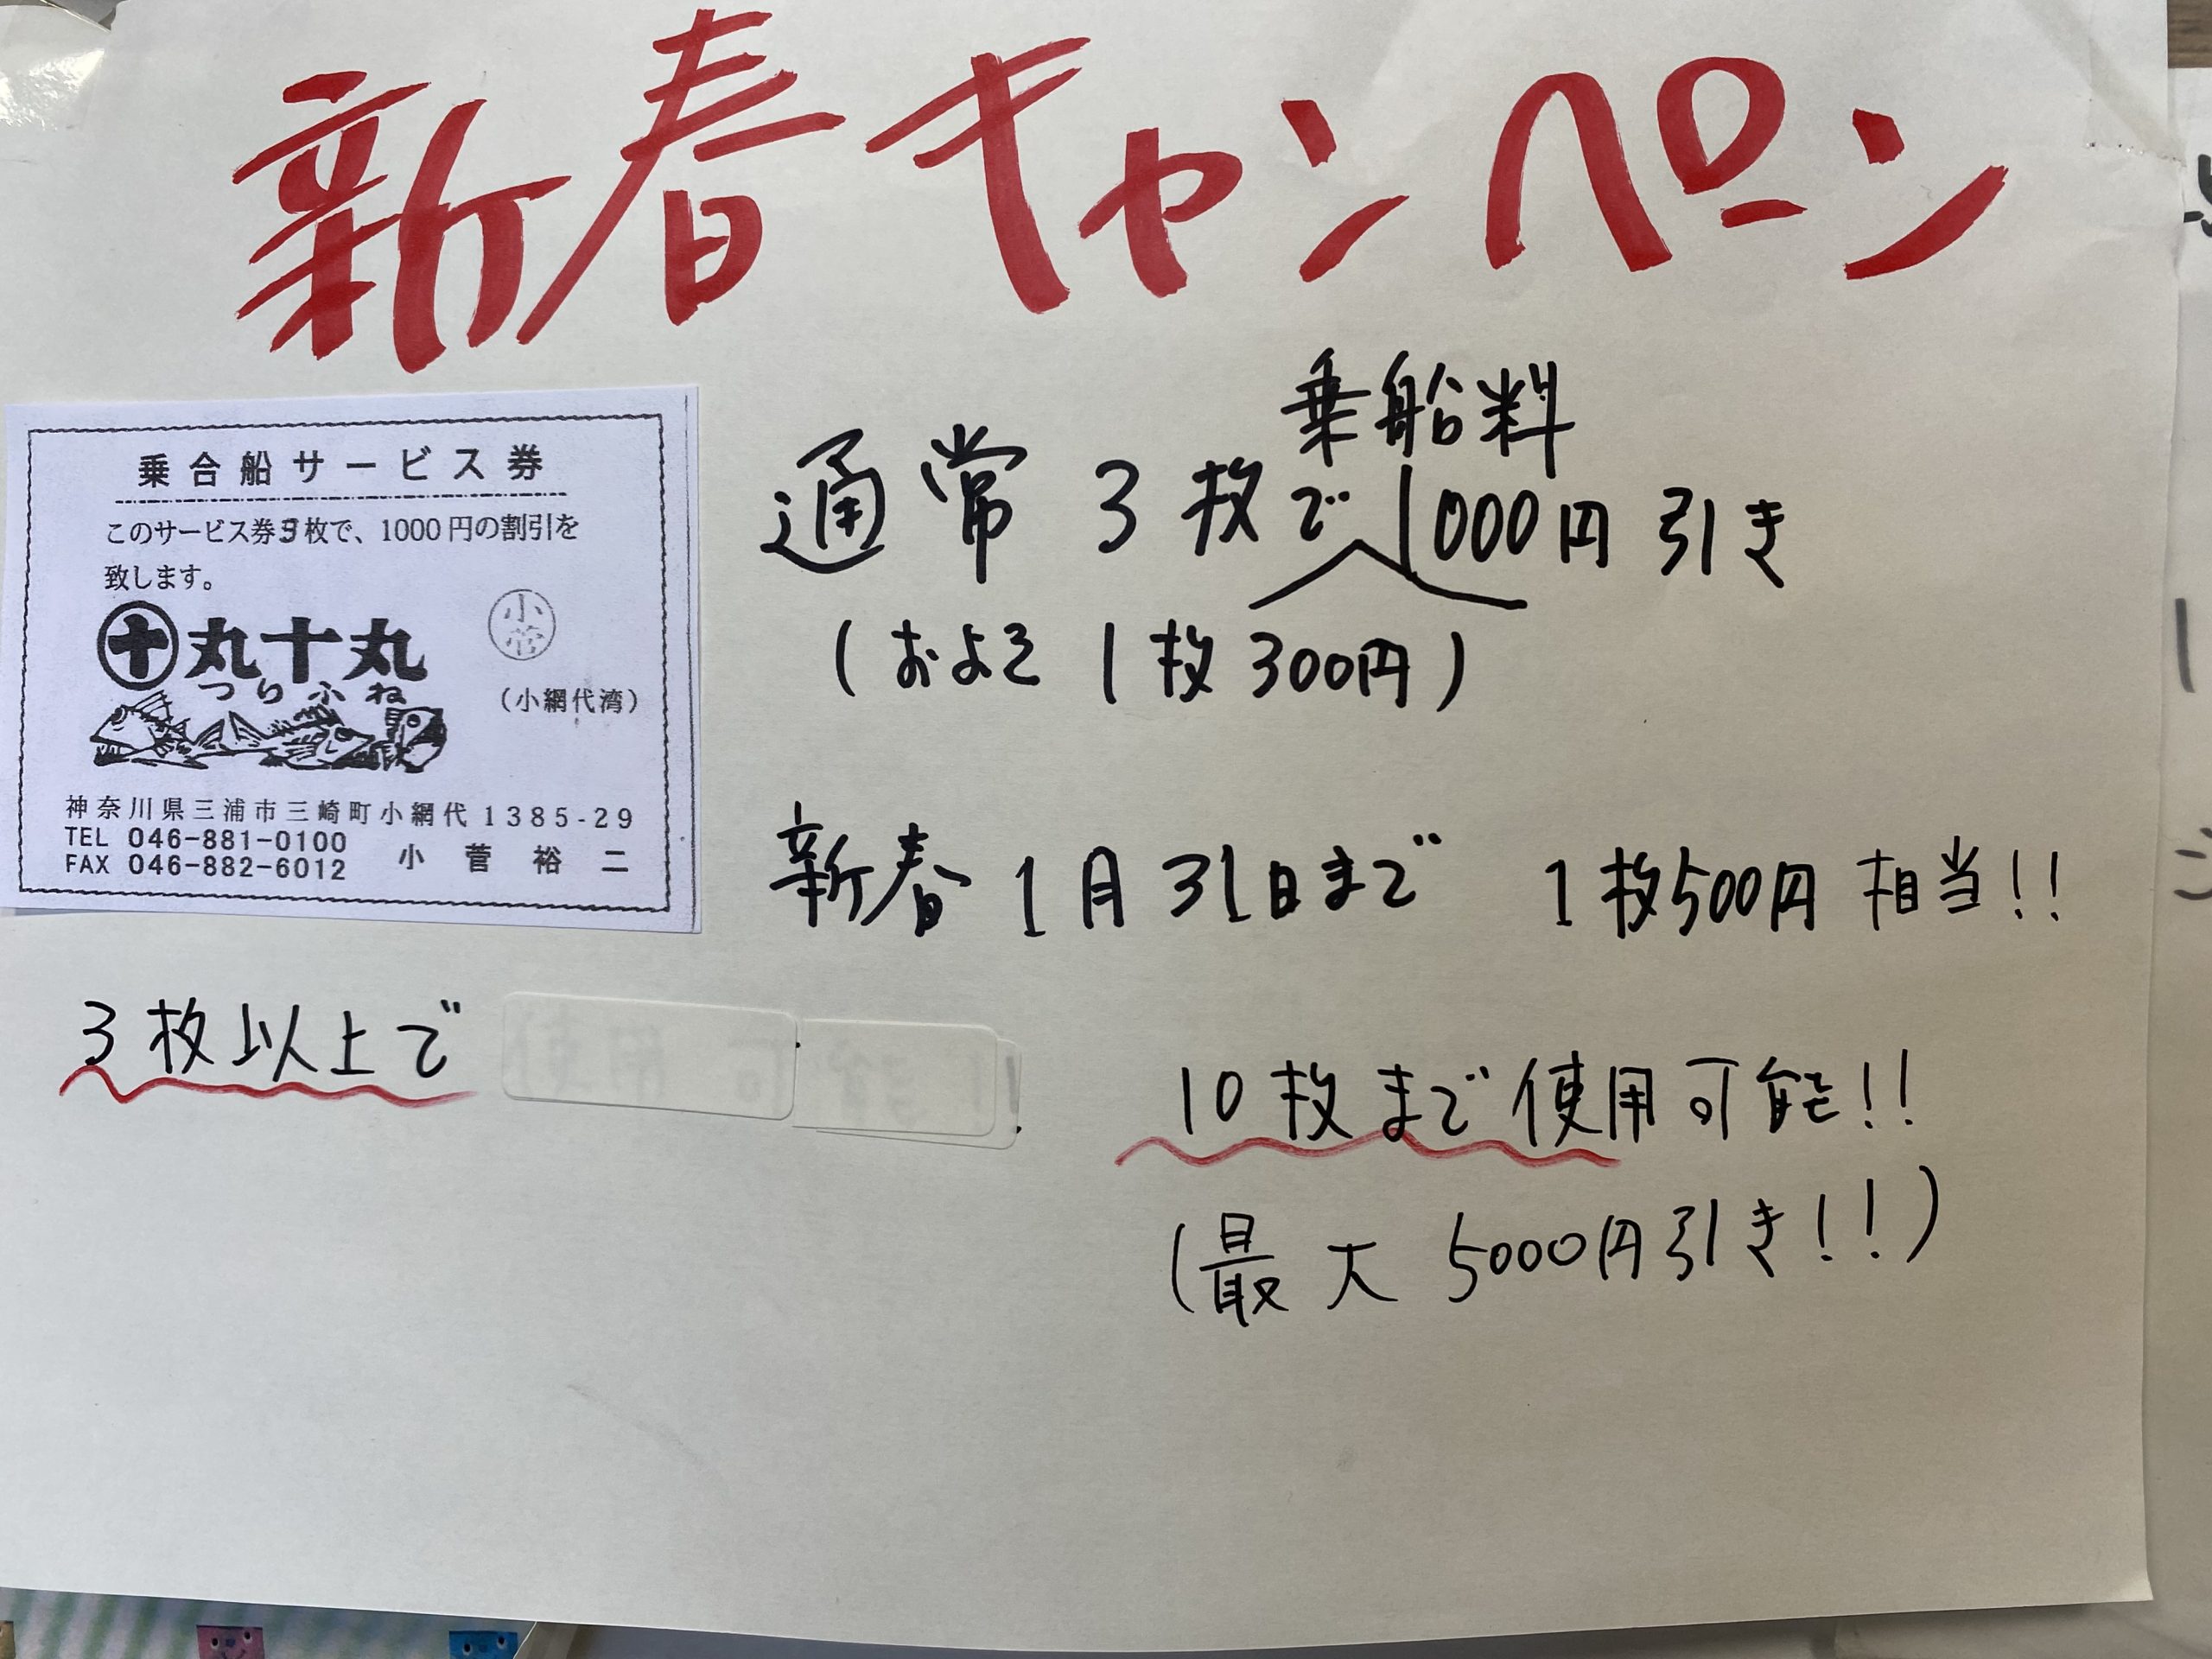 新春キャンペーン
乗合船サービス券
このサービス券3枚で、1000円の割引を
致します。
十 丸十丸
小菅
つりふね
(小網代湾)
神奈川県三浦市三崎町小網代1385-29
TEL 046-881-0100
FAX 046-882-6012 小菅裕二
通常 3枚で 乗船料 1000円引き
(およそ 1枚 300円)
新春 1月31日まで 1枚500円相当!!
3枚以上で
10枚まで使用可能!!
(最大 5000円引き!!)